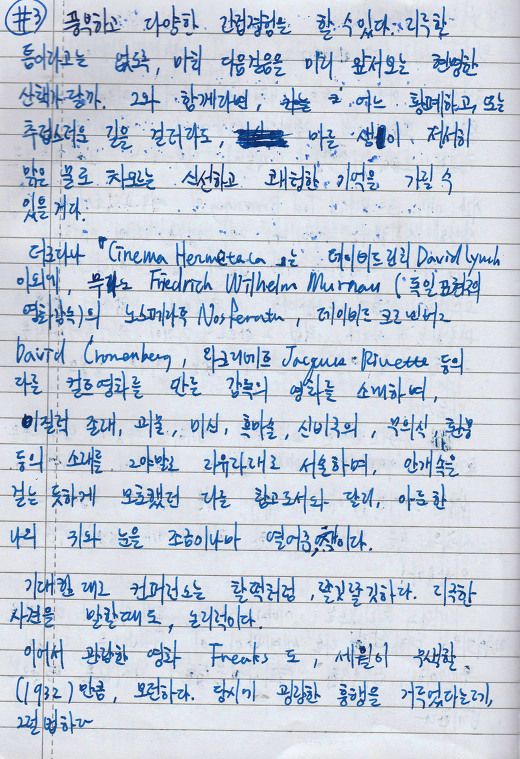 #3 풍부하고 다양한 간접경험을 할 수 있다. 지루할
틈이라고는 없도록, 마치 다음걸음을 미리 앞서보는 현명한
산책가 랄까. 그와 함께라면, 어느 황폐하고, 또는
추접스러운 길을 걸더라도, 마른 샘이 저서히
맑은 물로 차오르는 신선하고 쾌청한 기억을 가질 수
있을 거다.
더군다나 「Cinema Hermetica 는 데이비드 린치 David Lynch
이외에, 무르나우 Friedrich Wilhelm Murnau (독일 표현주의
영화감독)의 노스페라투 Nosferatu, 데이비드 크로넨버그
David Cronenberg, 자크리베트 Jacques Rivette 등의
다른 컬트영화를 만든 감독의 영화를 소개하며,
이질적 존재, 괴물, 미신, 흑마술, 신비주의, 무의식,
등의 소재를 그야말로 자유자재로 서술하며, 안개속을
걷는 듯하게 모호했던 다른 참고도서와 달리, 아둔한
나의 귀와 눈을 조금이나마 열어준 책이다.
기대한 대로 컨퍼런스는 활력처럼, 쫄깃쫄깃하다. 지극한
사견을 말할때도, 논리적이다.
이어서 관람한 영화 Freaks 도, 세월이 무색할
(1932)만큼, 모던하다. 당시기 굉장한 흥행을 거두었다는데,
그럴 법하다